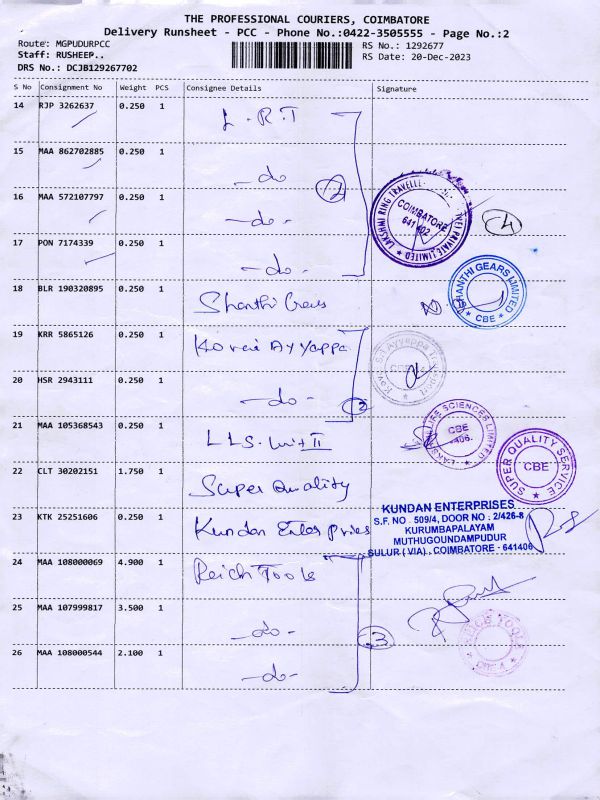 THE PROFESSIONAL COURIERS, COIMBATORE
Delivery Runsheet - PCC - Phone No.:0422-3505555 - Page No.:2
Route: MGPUDURPCC
RS No.: 1292677
Staff: RUSHEEP..
RS Date: 20-Dec-2023
DRS No.: DCJB129267702
S No Consignment No Weight PCS Consignee Details Signature
14 RJP 3262637 0.250 1 L.R.T
15 MAA 862702885 0.250 1 -do
16 MAA 572107797 0.250 1 -do-
17 PON 7174339 0.250 1 -do-
LAKSHMI RING TRAVELLE PRIVATE LIMITED
COIMBATORE
641 402
4
18 BLR 190320895 0.250 1 Shanthi Gears
SHANTHI GEARS LIMITED
CBE
19 KRR 5865126 0.250 1 Kovai Ayyappa
20 HSR 2943111 0.250 1 -do-
2
Kovai Ayyappa
21 MAA 105368543 0.250 1 LLS. Unit II
LIFE SCIENCES LIMITED
CBE
406.
22 CLT 30202151 1.750 1 Super Quality
SUPER QUALITY SERVICE
CBE
23 KTK 25251606 0.250 1 Kundan Enterprises
KUNDAN ENTERPRISES
S.F. NO . 509/4, DOOR NO : 2/426-8
KURUMBAPALAYAM
MUTHUGOUNDAMPUDUR
SULUR ( VIA) , COIMBATORE - 641406
24 MAA 108000069 4.900 1 Reich Tools
25 MAA 107999817 3.500 1 -do-
3
26 MAA 108000544 2.100 1 -do-
TOOLS